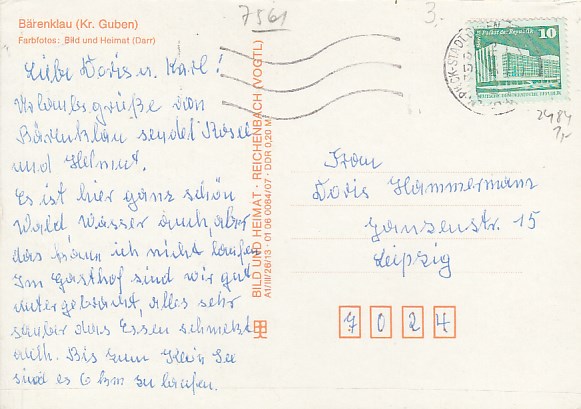 Bärenklau (Kr. Guben)
Farbfotos: Bild und Heimat (Darr)
7561
3,-
Liebe Doris u. Karl!
Urlaubsgrüße von
Bärenklau sendet
und Helmut.
Es ist hier ganz schön
Wald Wasser auch, aber
das kann ich nicht laufen
Im Gasthof sind wir gut
untergebracht, alles sehr
sauber das Essen schmeckt
auch. Bis zum Klein See
sind es 6 km zu laufen.
BILD UND HEIMAT · REICHENBACH (VOGTL)
A1/III/26/13 · 01 06 0064/07 · DDR 0,20 M
Palast der Republik
10
DEUTSCHE DEMOKRATISCHE REPUBLIK
2484
Frau
Doris Hammermann
Jansenstr. 15
Leipzig
7024